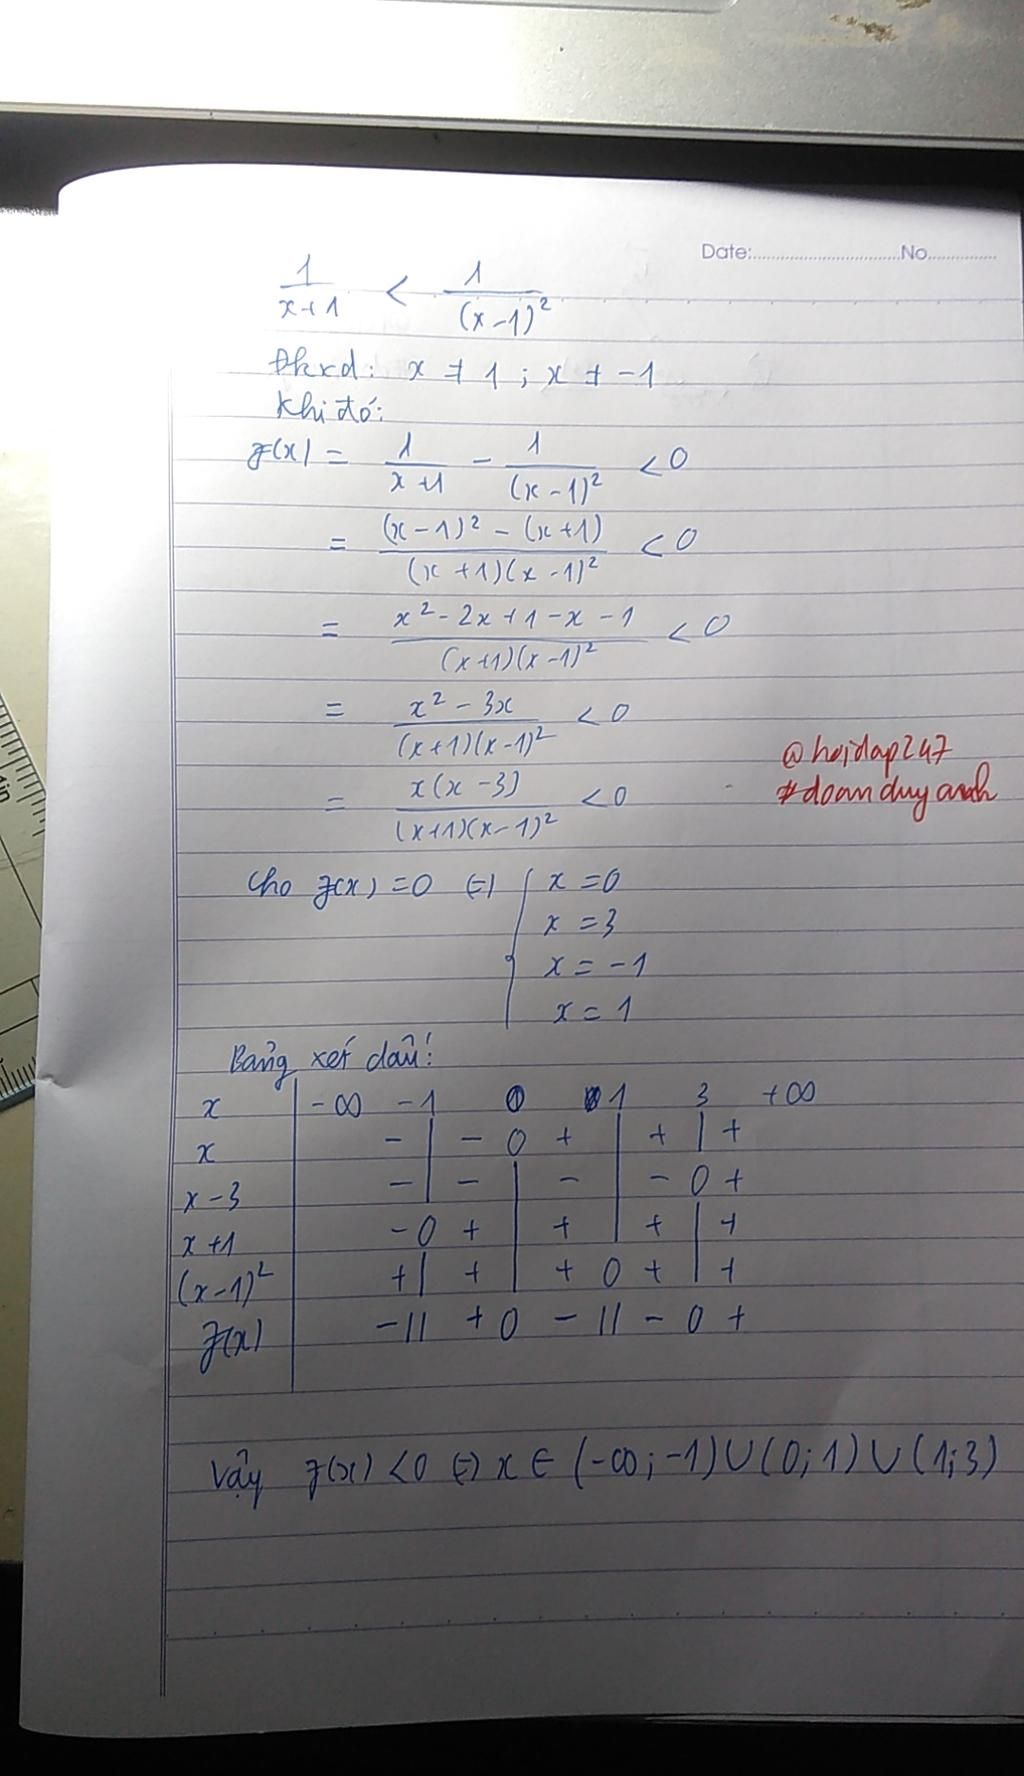 Date:.................................No...............
1/(x+1) < 1/(x-1)²
Đkxđ: x ≠ 1 ; x ≠ -1
Khi đó:
f(x) = 1/(x+1) - 1/(x-1)² < 0
= ((x-1)² - (x+1))/((x+1)(x-1)²) < 0
= (x² - 2x + 1 - x - 1)/((x+1)(x-1)²) < 0
= (x² - 3x)/((x+1)(x-1)²) < 0
@hoidap247
= x(x-3)/((x+1)(x-1)²) < 0
#doanduyanh
Cho f(x) = 0 (=) [ x = 0
x = 3
x = -1
x = 1
Bảng xét dấu:
x | -∞ -1 0 1 3 +∞
x | - | - 0 + | + | +
x-3 | - | - | - | - 0 +
x+1 | - 0 + | + | + | +
(x-1)² | + | + | + 0 + | +
f(x) | - || + 0 - || - 0 +
Vậy f(x) < 0 (=) x ∈ (-∞; -1) ∪ (0; 1) ∪ (1; 3)